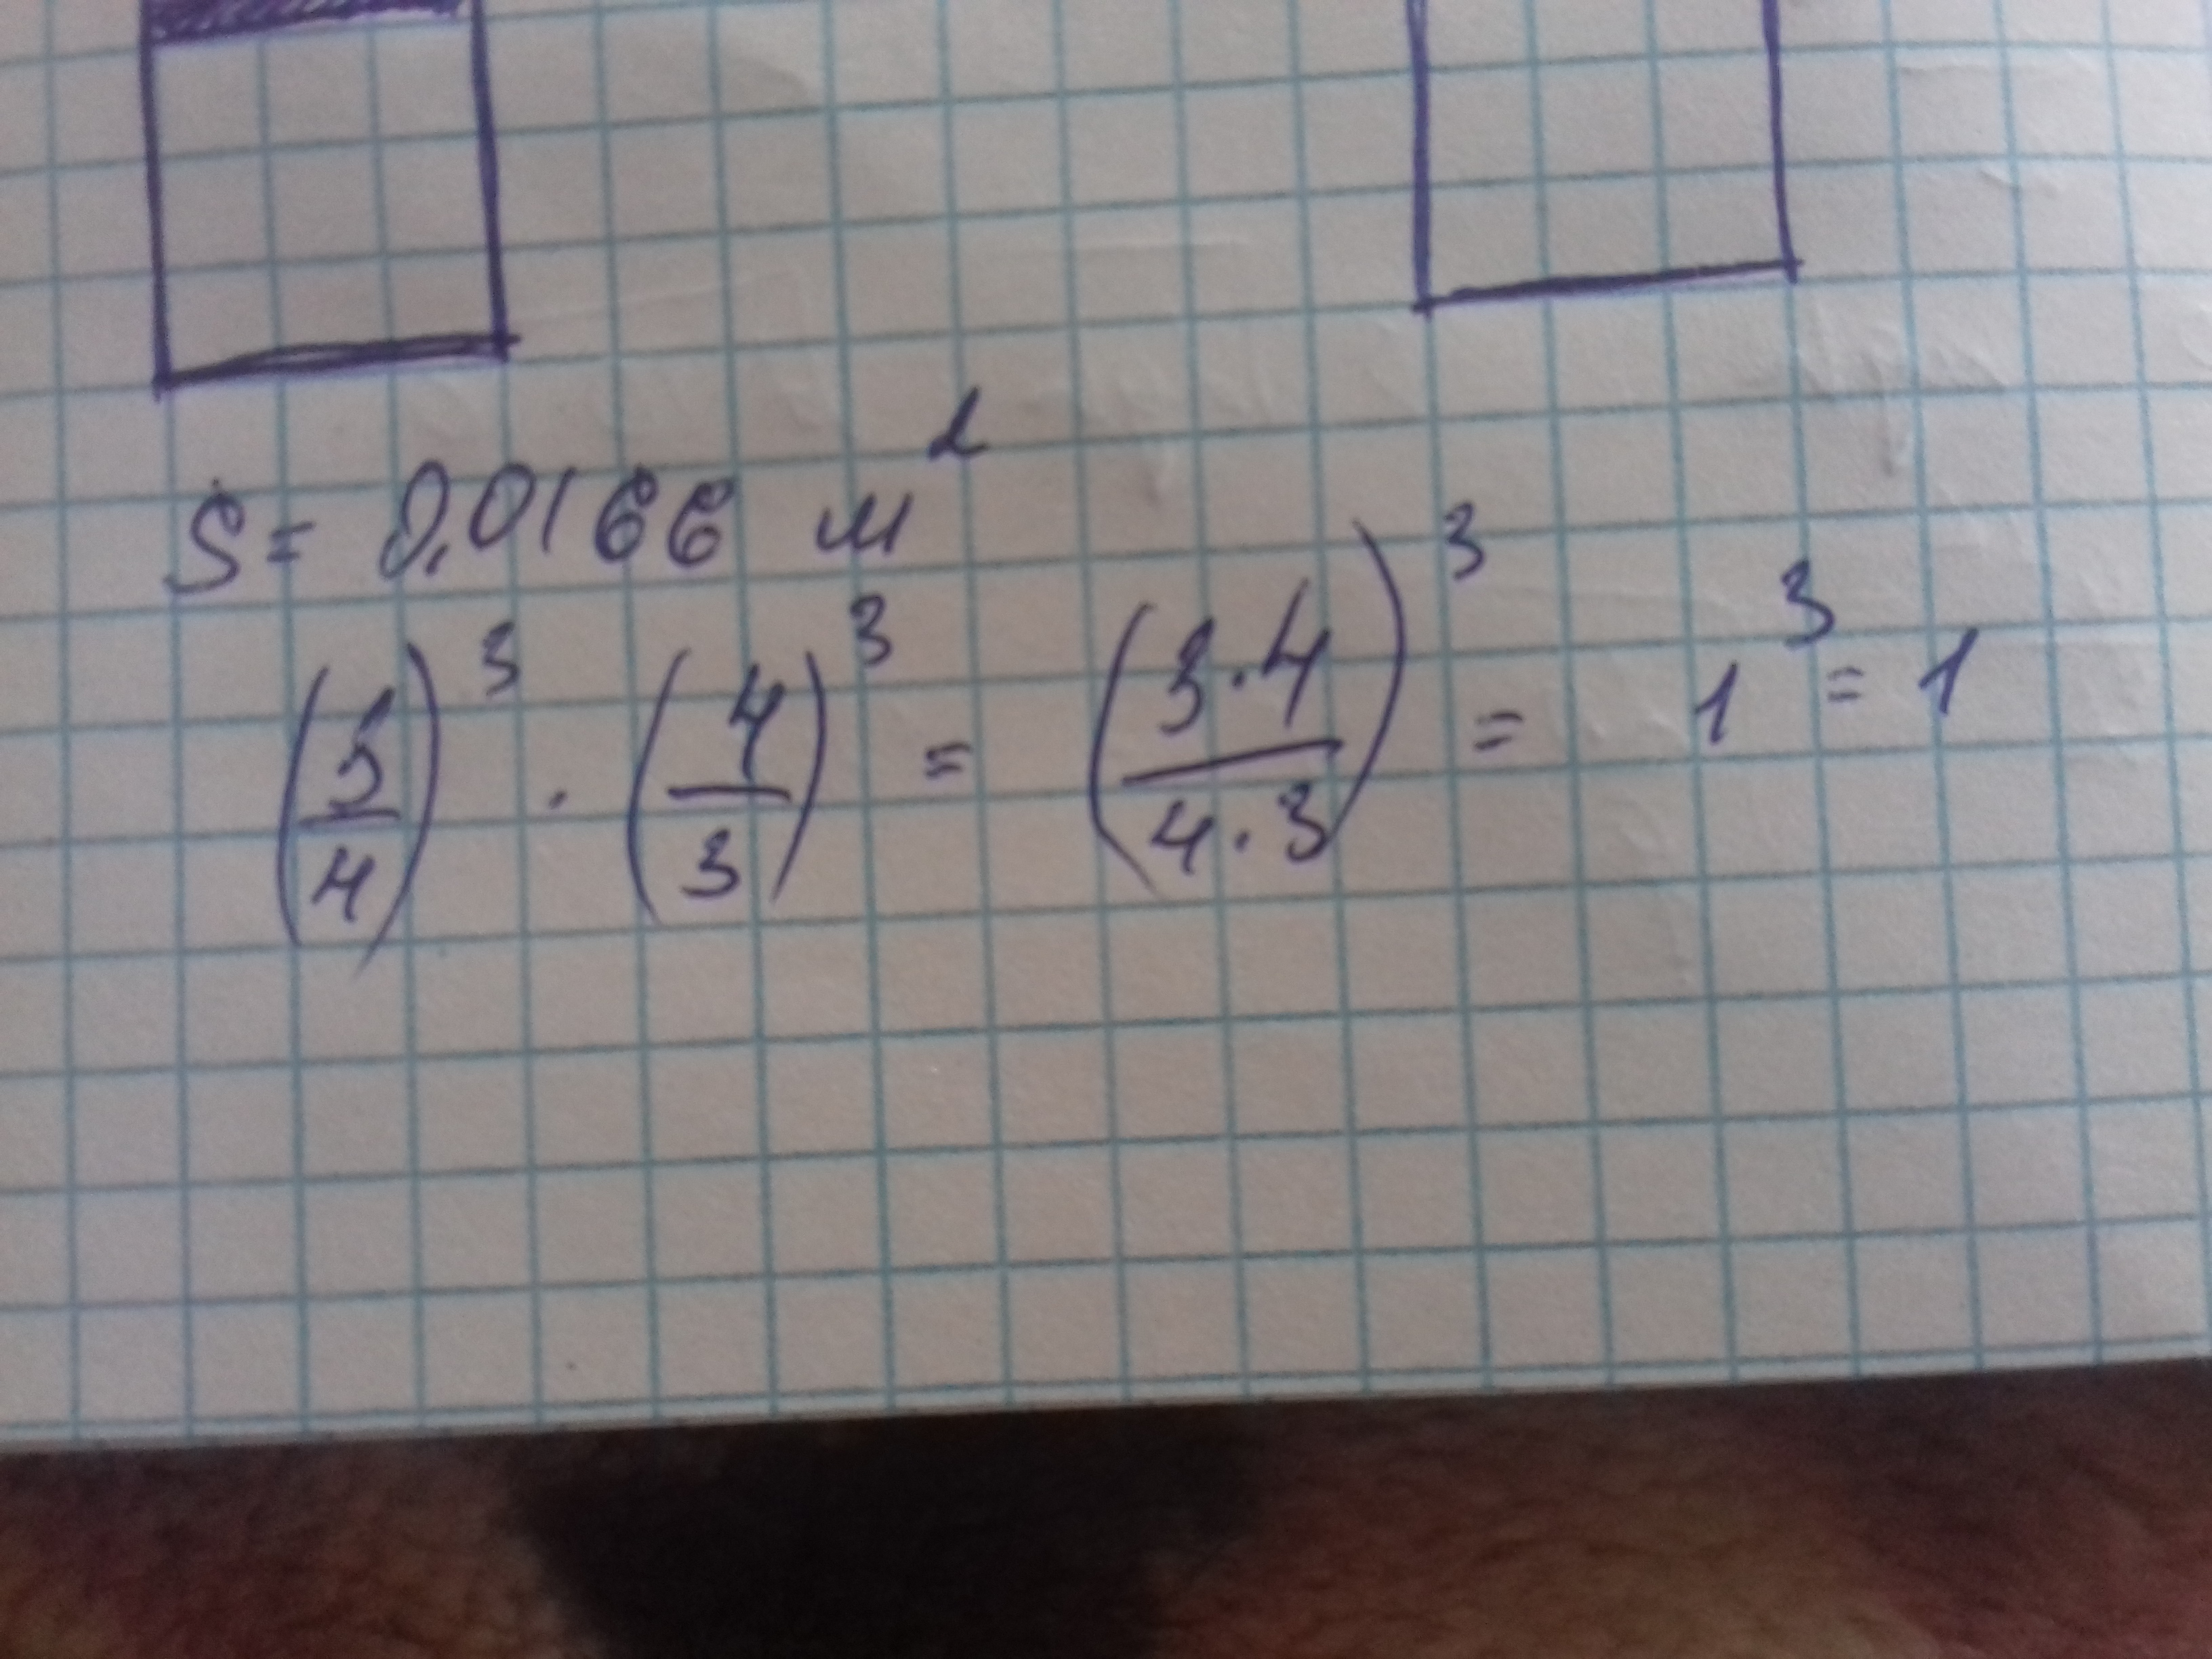 S = 0,0166 м²
(3/4)³ · (4/3)³ = (3·4/4·3)³ = 1³ = 1